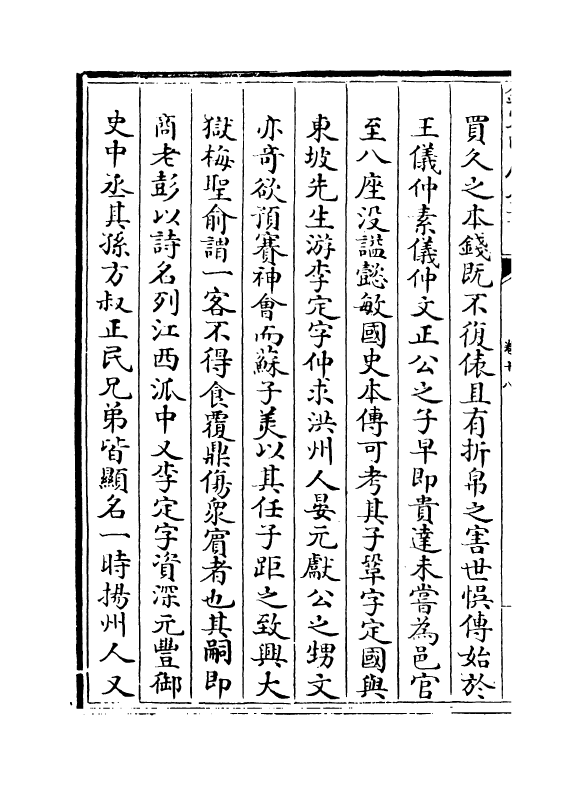 買久之本錢既不復俵且有折帛之害世悞傳始於
王儀仲素儀仲文正公之子早即貴達未嘗為邑官
至八座没諡懿敏國史本傳可考其子鞏字定國與
東坡先生游李定字仲求洪州人晏元獻公之甥文
亦奇欲預賽神會而蘇子美以其任子距之致興大
獄梅聖俞謂一客不得食覆鼎傷衆賓者也其嗣即
商老彭以詩名列江西派中又李定字資深元豐御
史中丞其孫方叔正民兄弟皆顯名一時揚州人又
卷十八